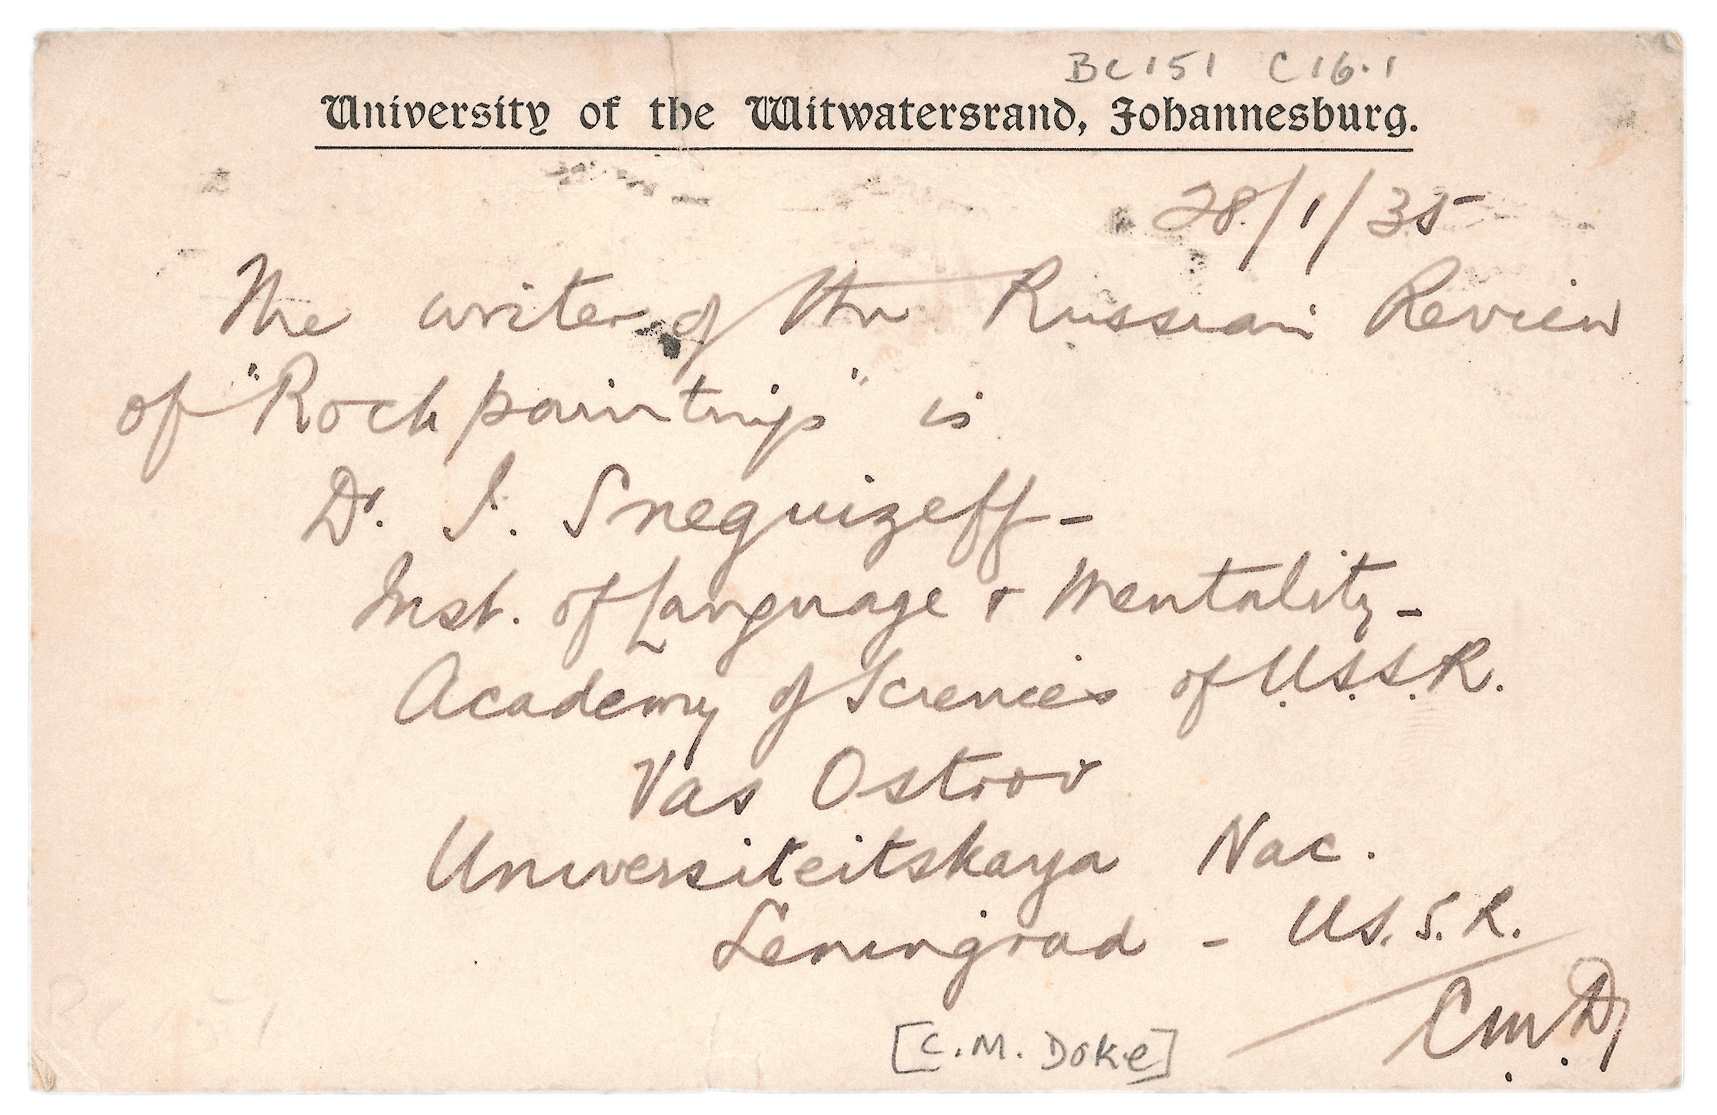 BC151 C16.1
University of the Witwatersrand, Johannesburg.
28/1/35
The writer of the Russian Review
of "Rock paintings" is
Dr. I. Sneguizeff -
Inst. of Language & Mentality -
Academy of Sciences of U.S.S.R.
Vas Ostrov
Universiteitskaya Nac.
Leningrad - U.S.S.R.
C.M.D.
[C.M. Doke]
BC 151